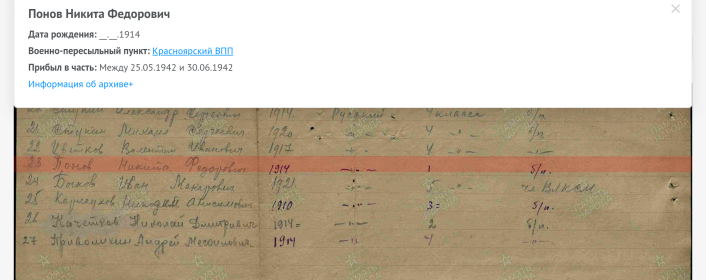 Понов Никита Федорович
Дата рождения: __.__.1914
Военно-пересыльный пункт: Красноярский ВПП
Прибыл в часть: Между 25.05.1942 и 30.06.1942
Информация об архиве+
Александр 1914. Русский 4 класса б/п.
21 Михаил Сергеевич 1920 -"- 4 -"-
22 Цветков Валентин Иванович 1917 -"- 4 -"-
23 Понов Никита Федорович 1914 -"- 1 б/п.
24 Быков Иван Макарович 1921. -"- 5 чл ВЛКСМ
25 Никодим Анисимович 1910 -"- 3= б/п.
26 Кочетков Николай Дмитриевич 1914= -"- 2 б/п.
27 Андрей 1914 -"- 4 -"-